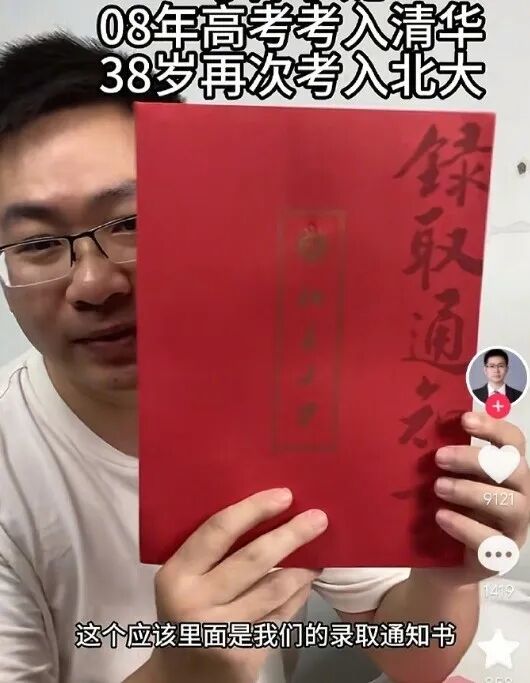 08年高考考入清华
38岁再次考入北大
錄取通知
北京大學
9121
1419
这个应该里面是我们的录取通知书